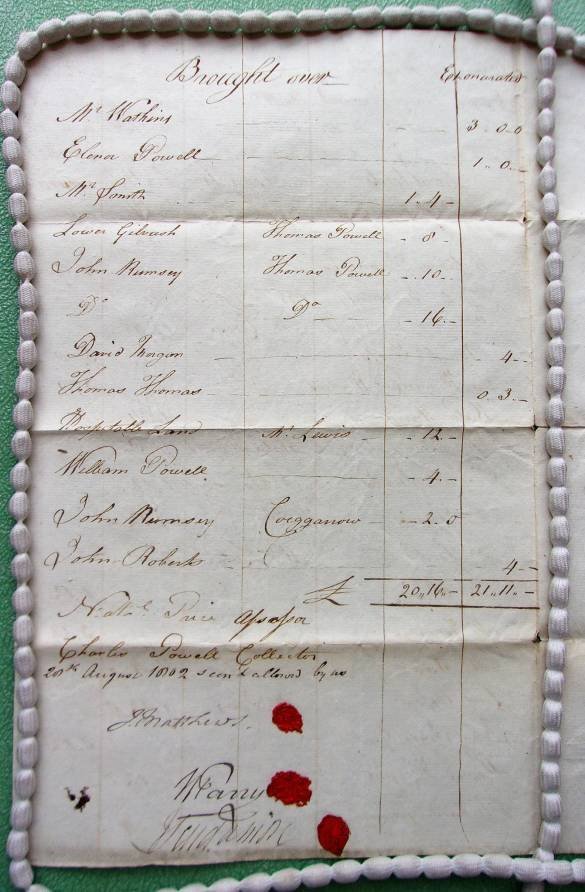 Brought over Exonerated
Mr. Watkins 3 .. 0 .. 0
Elenor Powell 1 .. 0 ..
Mr. Smith 1 .. 4 -
Lower Thomas Powell - 8 -
John Rumsey Thomas Powell - .. 10 .. -
Do Do - 16 .. -
David Morgan - 4 - -
Thomas Thomas 0 .. 3 .. -
Land Mr. Lewis - 12 .. -
William Powell - 4 .. -
John Rumsey - - 2 .. 0
John Roberts 4 - -
£ 20 ,, 16 ,, - 21 ,, 11 ,, -
Price Assessor
Charles Powell Collector
20th August 1802 seen & allowed by us
J. Matthews.